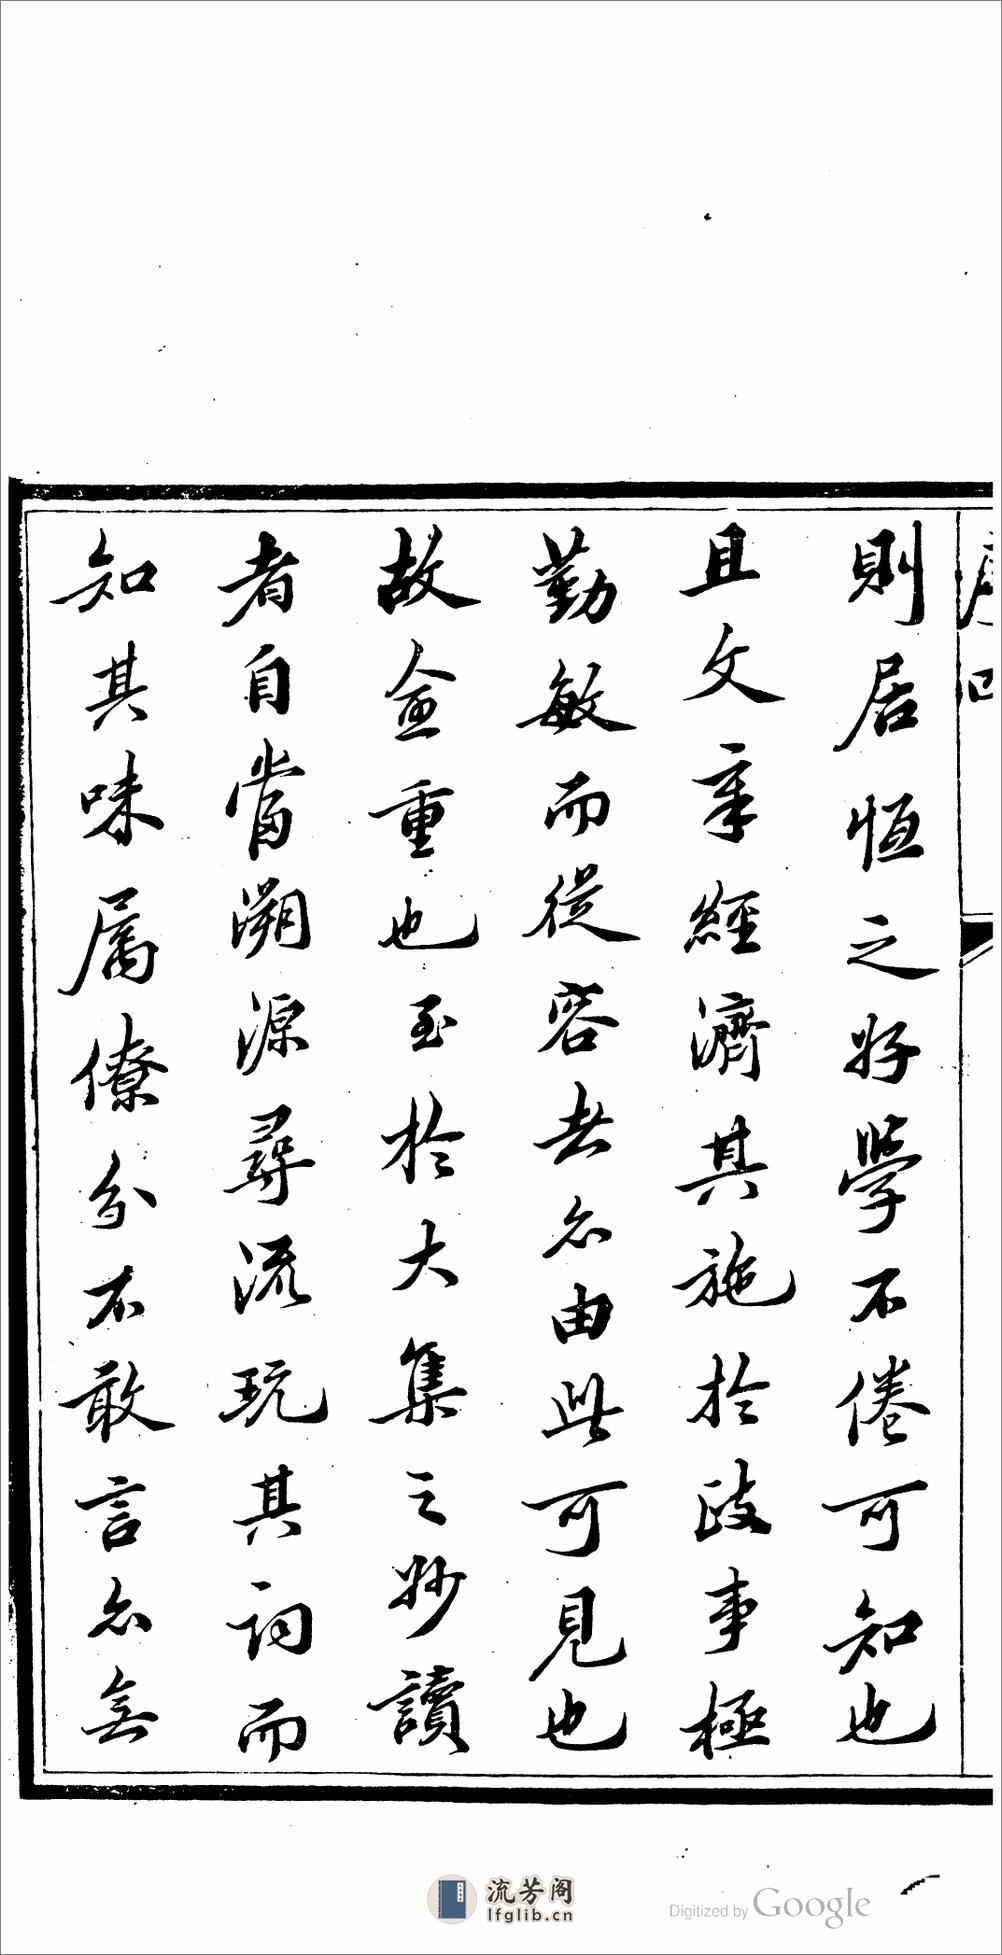 則居恒之好學不倦可知也
且文章經濟其施於政事極
勤敏而從容者亦由此可見也
故僉重也至於大集之妙讀
者自當溯源尋流玩其詞而
知其味屬僚分不敢言亦無
流芳阁
lfglib.cn
Digitized by Google